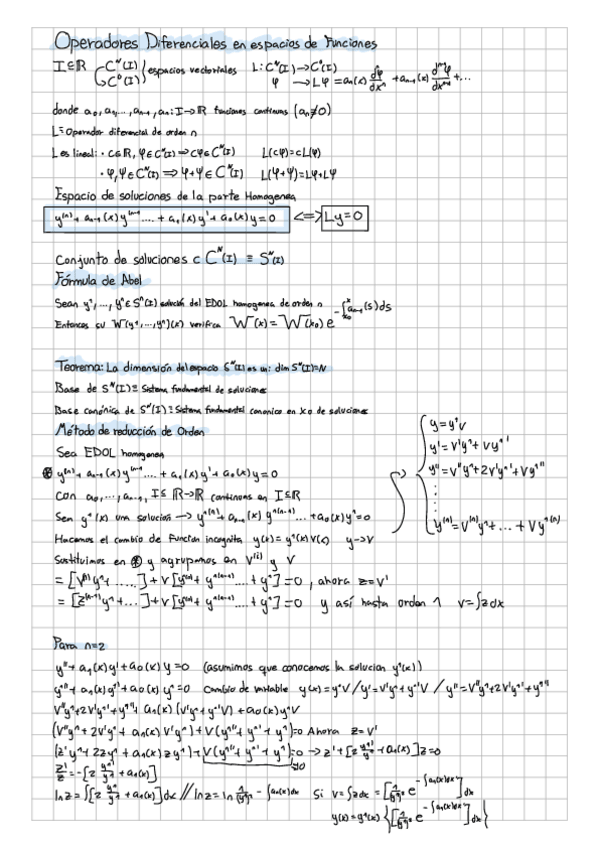 Operadores Diferenciales en espacios de Funciones
I⊆ℝ C^N(I) C^0(I) } espacios vectoriales L: C^N(I) → C^0(I)
φ → Lφ = an(x) dφ/dx^n + an-1(x) d^(n-1)φ/dx^(n-1) + ...
donde a0, a1, ..., an-1, an: I→ℝ funciones continuas (an≠0)
L≡Operador diferencial de orden n
L es lineal: · c∈ℝ, φ∈C^N(I) ⇒ cφ∈C^N(I) L(cφ)=cL(φ)
· φ,ψ∈C^N(I) ⇒ φ+ψ∈C^N(I) L(φ+ψ)=Lφ+Lψ
Espacio de soluciones de la parte Homogenea
y^(n) + an-1(x)y^(n-1) .... + a1(x)y' + a0(x)y=0 <=> Ly=0
Conjunto de soluciones c C^N(I) ≡ S^N(I)
Fórmula de Abel
Sean y^1, ..., y^n ∈ S^n(I) solución del EDOL homogenea de orden n
Entonces su W(y^1, ..., y^n)(x) verifica W(x) = W(x0) e^(-∫_x0^x an-1(s)ds)
Teorema: La dimensión del espacio S^N(I) es un: dim S^N(I)=N
Base de S^N(I) ≡ Sistema fundamental de soluciones
Base canónica de S^N(I) ≡ Sistema fundamental canonico en x0 de soluciones
Método de reducción de Orden
Sea EDOL homogenea
⊛ y^(n) + an-1(x)y^(n-1) .... + a1(x)y' + a0(x)y=0
Con a0, ..., an-1, I⊆ℝ→ℝ continuas en I⊆ℝ
Sea y^1(x) una solución → y^1(n) + an-1(x) y^1(n-1) ... + a0(x)y^1=0
Hacemos el cambio de Función incognita y(x) = y^1(x)V(x) y→V
Sustituimos en ⊛ y agrupamos en V^(i) y V
= [V^(n)y^1 + .....] + V[y^1(n) + y^1(n-1) .... + y^1]=0, ahora z=V'
= [z^(n-1)y^1 + ...] + V[y^1(n) + y^1(n-1) .... + y^1]=0 y así hasta orden 1 V=∫zdx
y=y^1V
y'=V'y^1+Vy^1'
y''=V''y^1+2V'y^1'+Vy^1''
⋮
y^(n)=V^(n)y^1+ ... + Vy^1(n)
Para n=2
y''+a1(x)y'+a0(x)y=0 (asumimos que conocemos la solucion y^1(x))
y^1''+a1(x)y^1'+a0(x)y^1=0 Cambio de variable y(x)=y^1V / y'=V'y^1+y^1'V / y''=V''y^1+2V'y^1'+y^1''
V''y^1+2V'y^1'+y^1''+a1(x)(V'y^1+y^1'V)+a0(x)y^1V
(V''y^1+2V'y^1'+a1(x)V'y^1)+V(y^1''+y^1'+y^1)=0 Ahora z=V'
(z'y^1+2zy^1'+a1(x)zy^1)+V(y^1''+y^1'+y^1)=0 → z'+[2 y^1'/y^1 + a1(x)]z=0
z'/z=-[2 y^1'/y^1 + a1(x)]
lnz=∫[2 y^1'/y^1 + a1(x)]dx // lnz=ln 1/y^1² - ∫a1(x)dx Si V=∫zdx=[1/y^1² e^(-∫a1(x)dx)]dx
y(x)=y^1(x){[1/y^1² e^(-∫a1(x)dx)]dx}